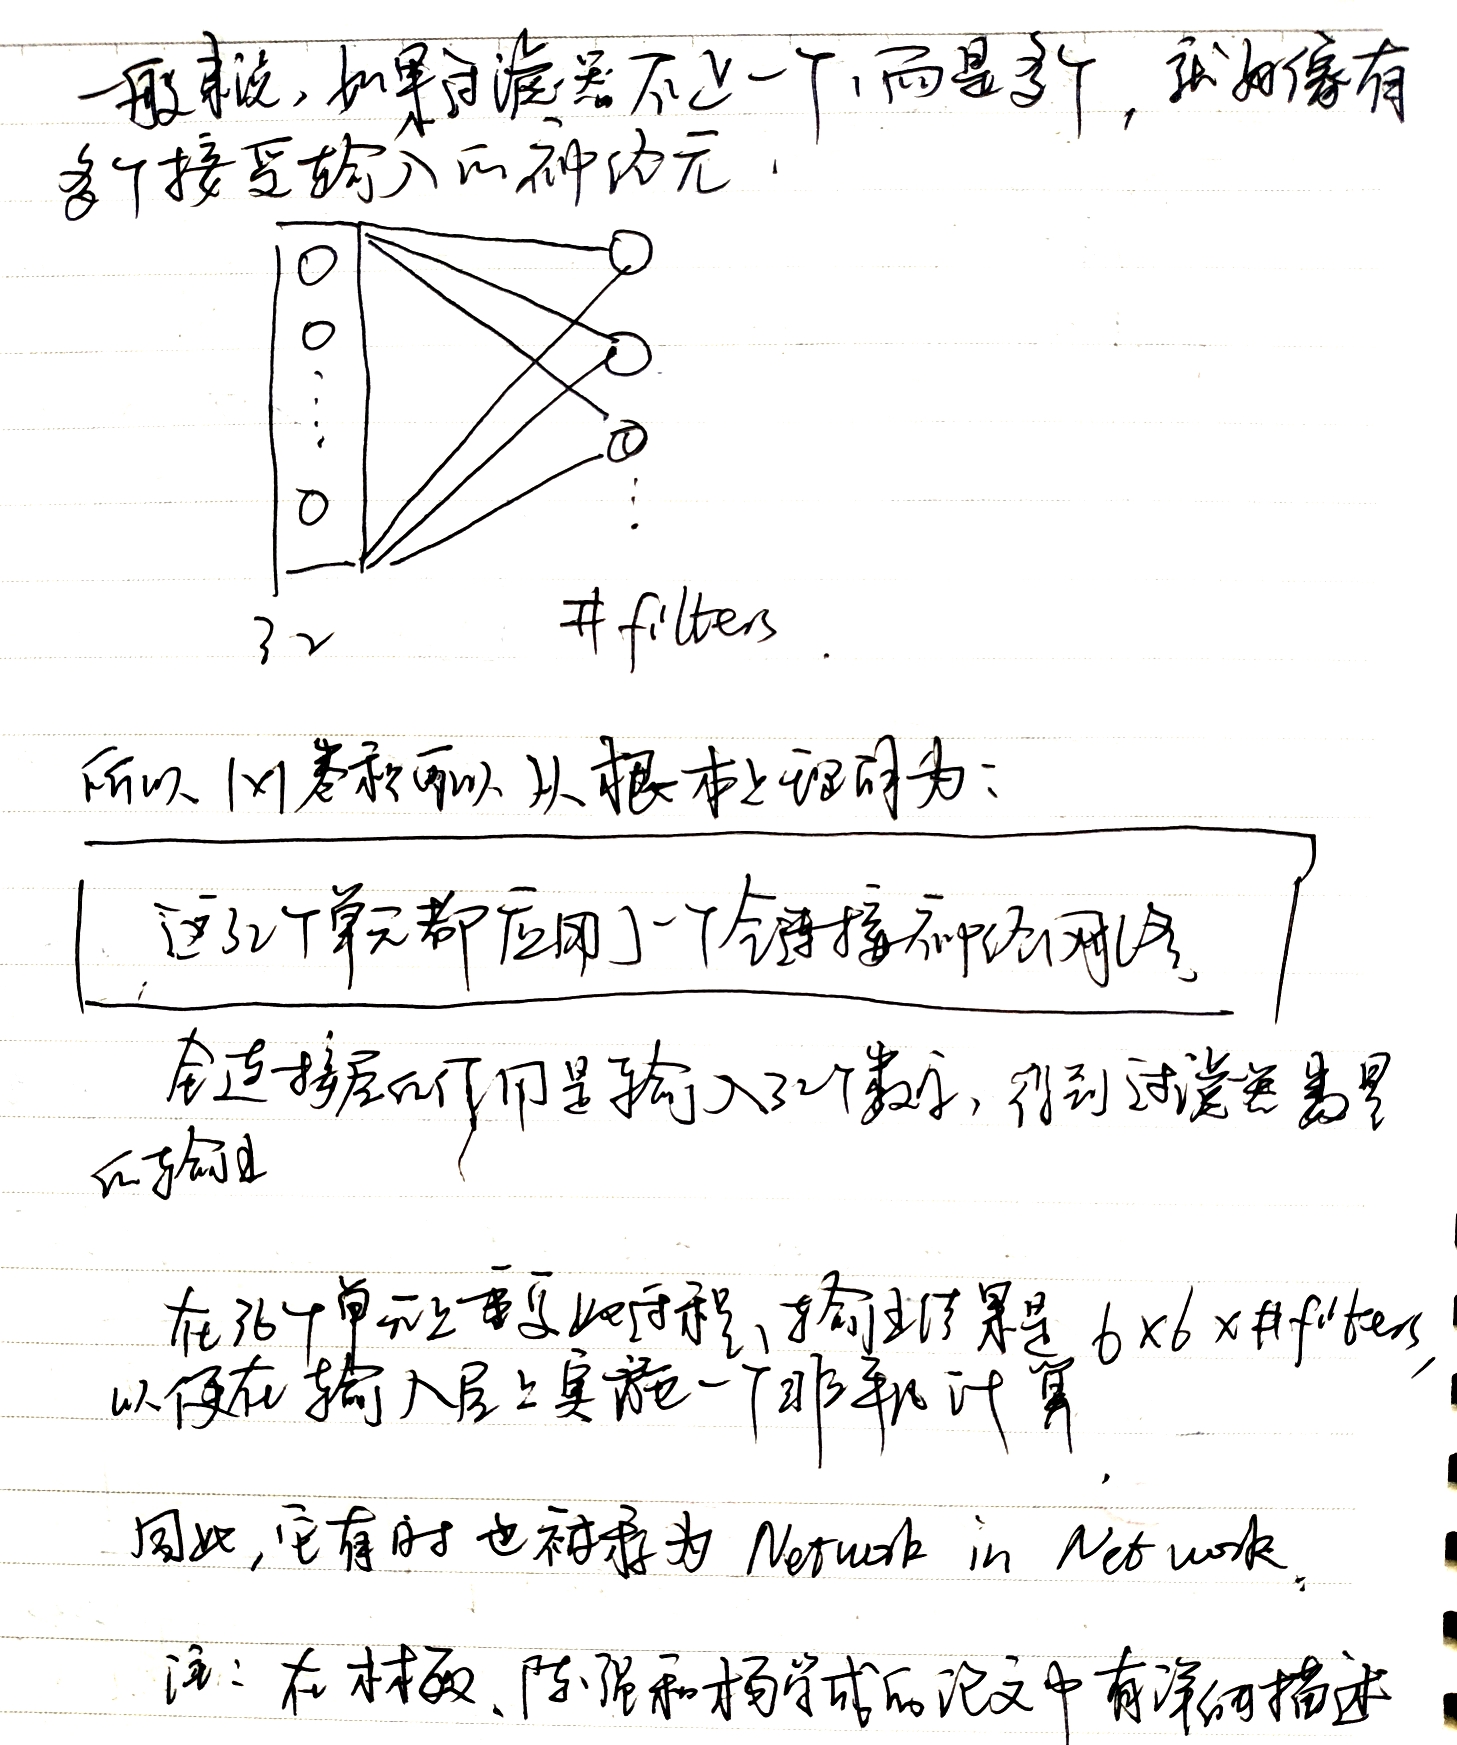 一般来说，如果过滤器不止一个，而是多个，就好像有
多个接受输入的神经元．
32 #filters．
所以 1×1卷积可以从根本上理解为：
这32个单元都应用了一个全连接神经网络。
全连接层的作用是输入32个数字，得到过滤器数量
的输出
在36个单元上重复此过程，输出结果是 6×6×#filters，
以便在输入层上实施一个非平凡计算．
因此，它有时也被称为 Network in Network。
注：在林敏、陈强和杨学成的论文中有详细描述